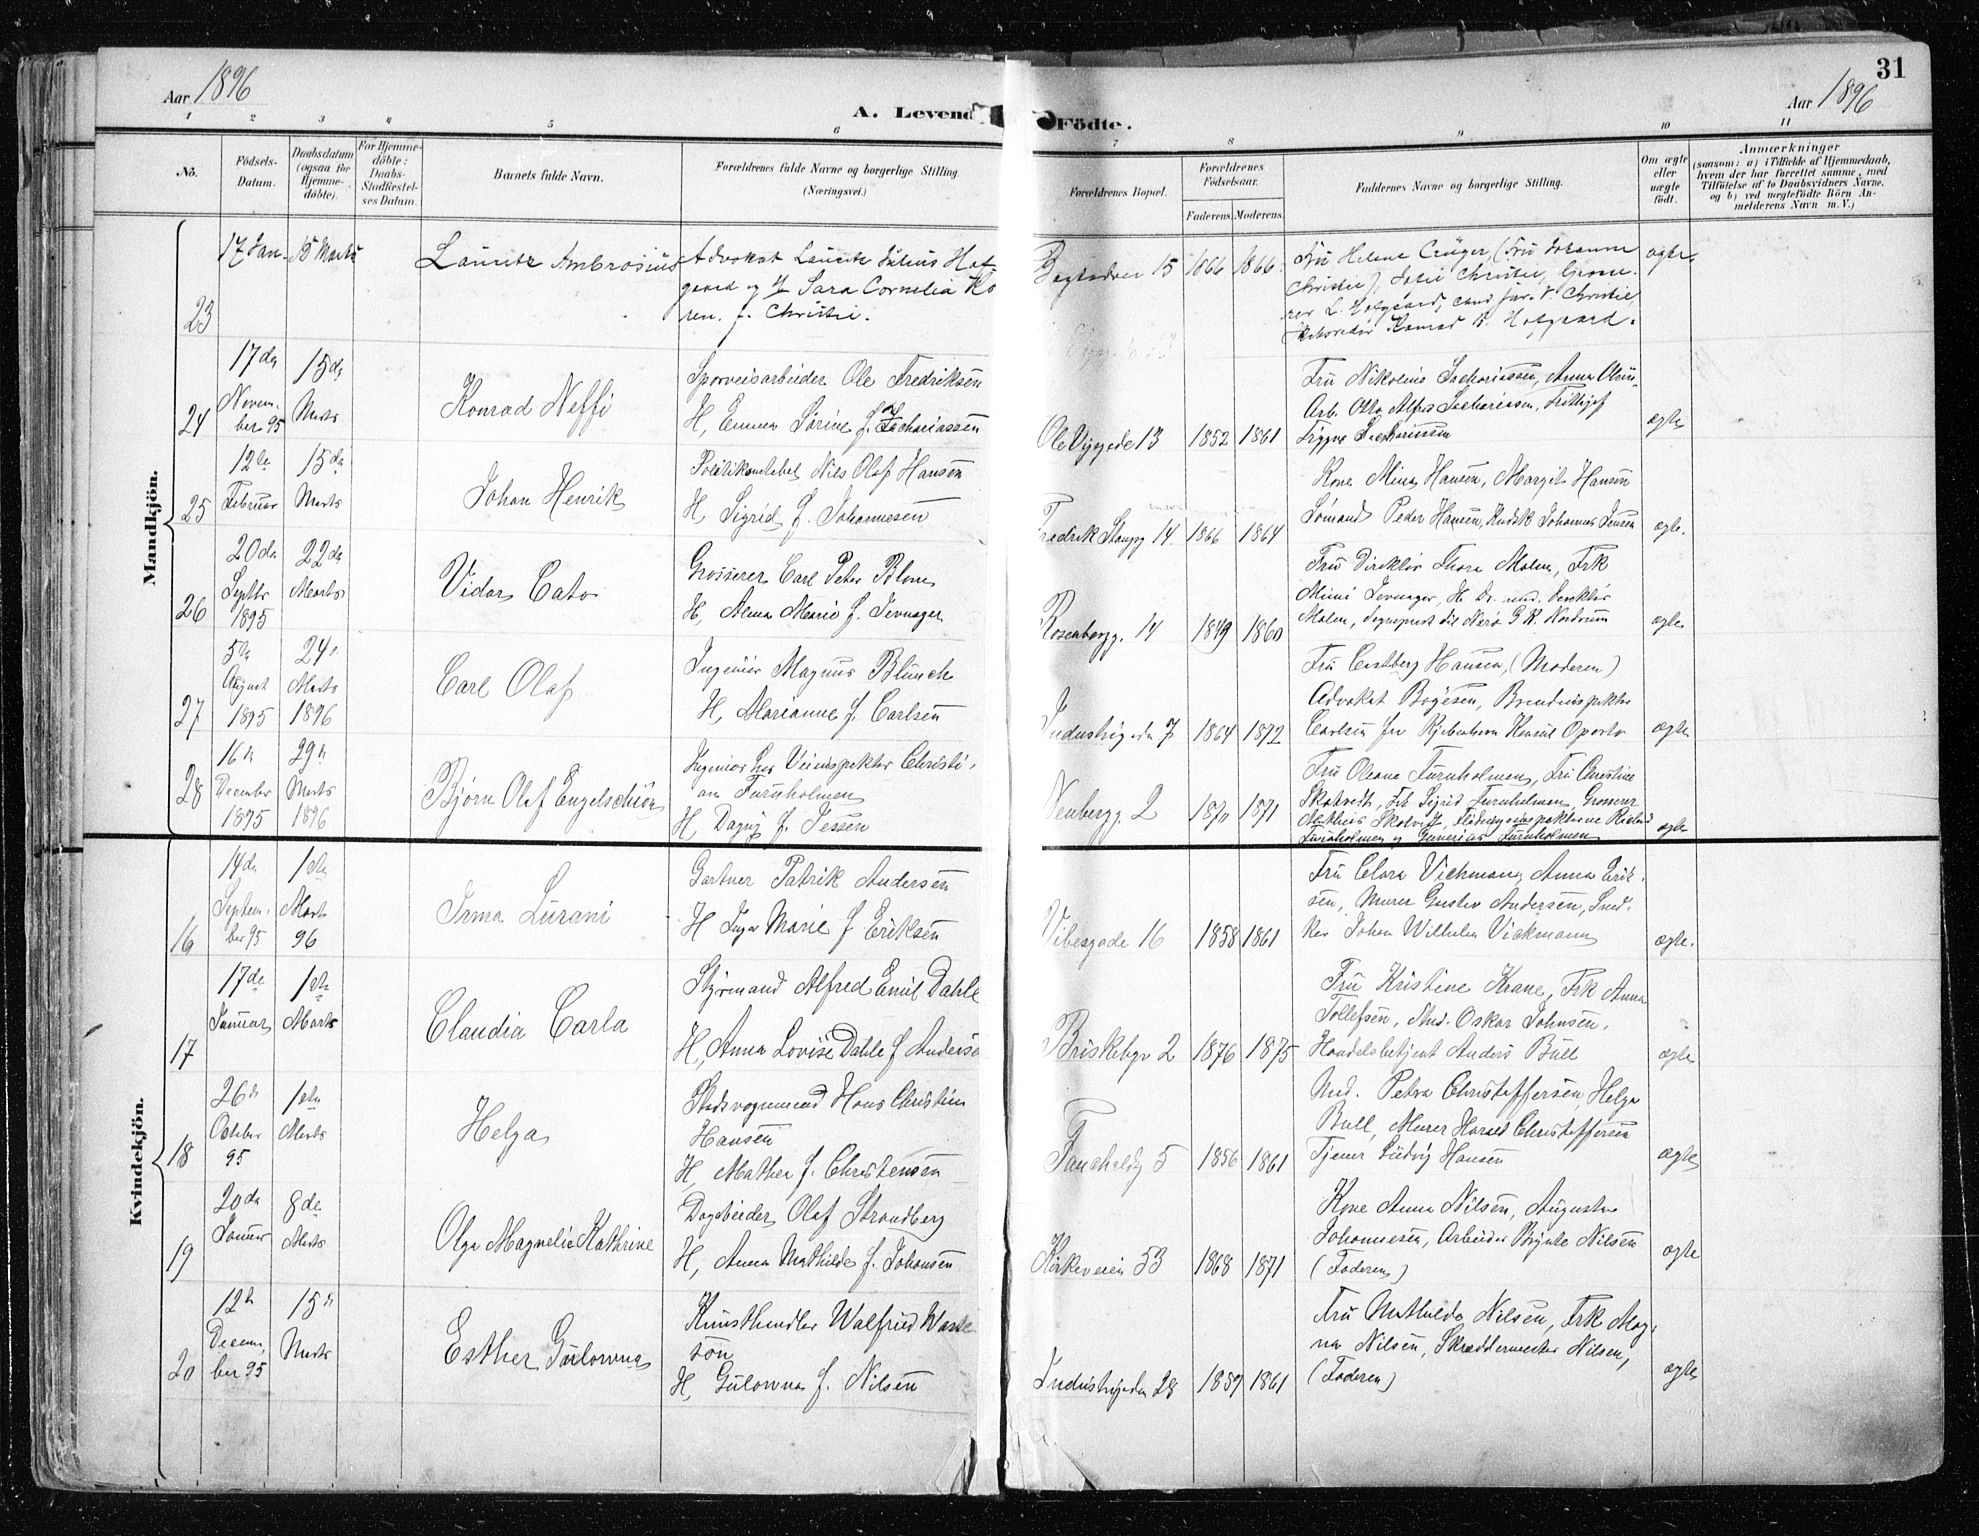 31
Aar 1896
Aar 1896
A. Levende Födte.
1 2 3 4 5 6 7 8 9 10 11
No.
Födsels-
Datum.
Daabsdatum
(ogsaa for
Hjemme-
döbte).
For Hjemme-
döbte:
Daabs-
Stadfæstel-
ses Datum.
Barnets fulde Navn.
Forældrenes fulde Navne og borgerlige Stilling.
(Næringsvei.)
Forældrenes Bopæl.
Forældrenes
Födselsaar.
Faderens. Moderens.
Faddernes Navne og borgerlige Stilling.
Om ægte
eller
uægte
födt.
Anmærkninger
(saasom: a) i Tilfælde af Hjemmedaab,
hvem der har forrettet samme, med
Tilföielse af to Daabsvidners Navne.
og b) ved uægtefödte Börn An-
melderens Navn m. V.)
Mandkjön.
23
17 Jan.
15 Marts
Lauritz Ambrosius
Advokat Lauritz Julius Hol
gaard og H Sara Cornelia Ko
ren f. Christie.
15
1866 1866
Fru Helene Crüger, (Fru Johanne
Christie), Julie Christie, Grosse-
rer L. Holgaard, cand. jur. V. Christie,
Konrad B. Holgaard.
ægte
24
17de
Novem-
ber 95
15de
Marts
Konrad Neffi
Sporveisarbeider Ole Fredriksen
H, Emma Sørine f. Zachariassen
Ole Viggsgde 13
1852 1861
Fru Nikoline Zachariassen, Anna Olsen
Arb. Otto Alfred Zachariassen, Frithjof
Trygve Zachariassen
ægte
25
12te
Februar
15de
Marts
Johan Henrik
Politikonstabel Nils Olaf Hansen
H, Sigrid f. Johannesen
Fredrik Stangsg 14
1866 1864
Kone Mina Hansen, Margit Hansen
Sømand Peder Hansen, Kudsk Johannes Jensen
ægte.
26
20de
Septbr
1895
22de
Marts
Vidar Cato
Grosserer Carl Peter Blom
H, Alma Marie f. Jevnager
Rosenborgg. 14
1849 1860
Fru Direktør Thora Malm, Frk
Mimi Jevnager, H. Dr. med. Direktør
Malm, G. R. Nordrum
ægte
27
5te
August
1895
24de
Marts
1896
Carl Olaf
Ingeniør Magnus Blunch
H, Marianne f. Carlsen
Industrigaden 7
1864 1872
Fru Hansen, (Moderen)
Advokat Bogesen, Brandinspektør
Carlsen fra Kjøbenhavn Konsul Oporto
ægte
28
16de
December
1895
29de
Marts
1896
Bjørn Olaf Engelschiøn
Ingeniør Veiinspektør Christi-
an Furuholmen
H Dagny f. Jessen
Neubergg. 2
1870 1871
Fru Oleane Furuholmen, Fru Christine
Skotvedt, Frk Sigrid Furuholmen, Grosserer
Mathias Skotvedt, Rickard
Furuholmen og Furuholmen
ægte
Kvindekjön.
16
14de
Septem-
ber 95
1ste
Mart
96
Irma Lurani
Gartner Patrik Andersen
H Inga Marie f Eriksen
Vibesgade 16
1858 1861
Fru Clara Vickman, Anna Erik-
sen, Murer Gustav Andersen, Sned-
ker Johan Wilhelm Vickmann
ægte.
17
17de
Januar
1ste
Marts
Claudia Carla
Styrmand Alfred Emil Dahle
H, Anna Lovise Dahle f Anderse
Briskebyv 2
1876 1875
Fru Kristine Krane, Frk Anna
Tollefsen, Snd. Oskar Johnsen,
Handelsbetjent Anders Bull
ægte
18
26de
October
95
1ste
Marts
Helga
Stadsvognmand Hans Christian
Hansen
H, Mathea f. Christensen
Fauchaldsg 5
1856 1861
Md. Petra Christoffersen, Helga
Bull, Murer Harald Christoffersen
Tjener Ludvig Hansen
ægte
19
20de
Januar
8de
Marts
Olga Magnelie Kathrine
Dagarbeider Olaf Strandberg
H, Anna Mathilde f. Johansen
Kirkeveien 53
1868 1871
Kone Anna Nilsen, Augusta
Johannesen, Arbeider Bynte Nilsen
(Faderen)
ægte
20
12te
Decem-
ber 95
15de
Marts
Esther Gulowna
Kunsthandler Walfrid
søn
H, Gulowna f. Nilsen
Industrigaden 28
1859 1861
Fru Mathilde Nilsen, Frk Mag-
na Nilsen, Skræddermester Nilsen,
(Faderen)
ægte